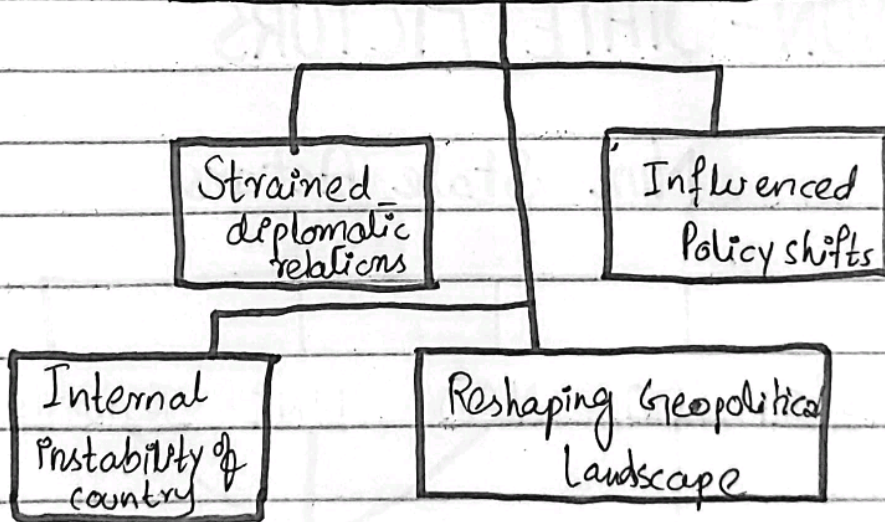 Strained
diplomatic
relations
Influenced
Policy shifts
Internal
instability of
country
Reshaping Geopolitical
Landscape